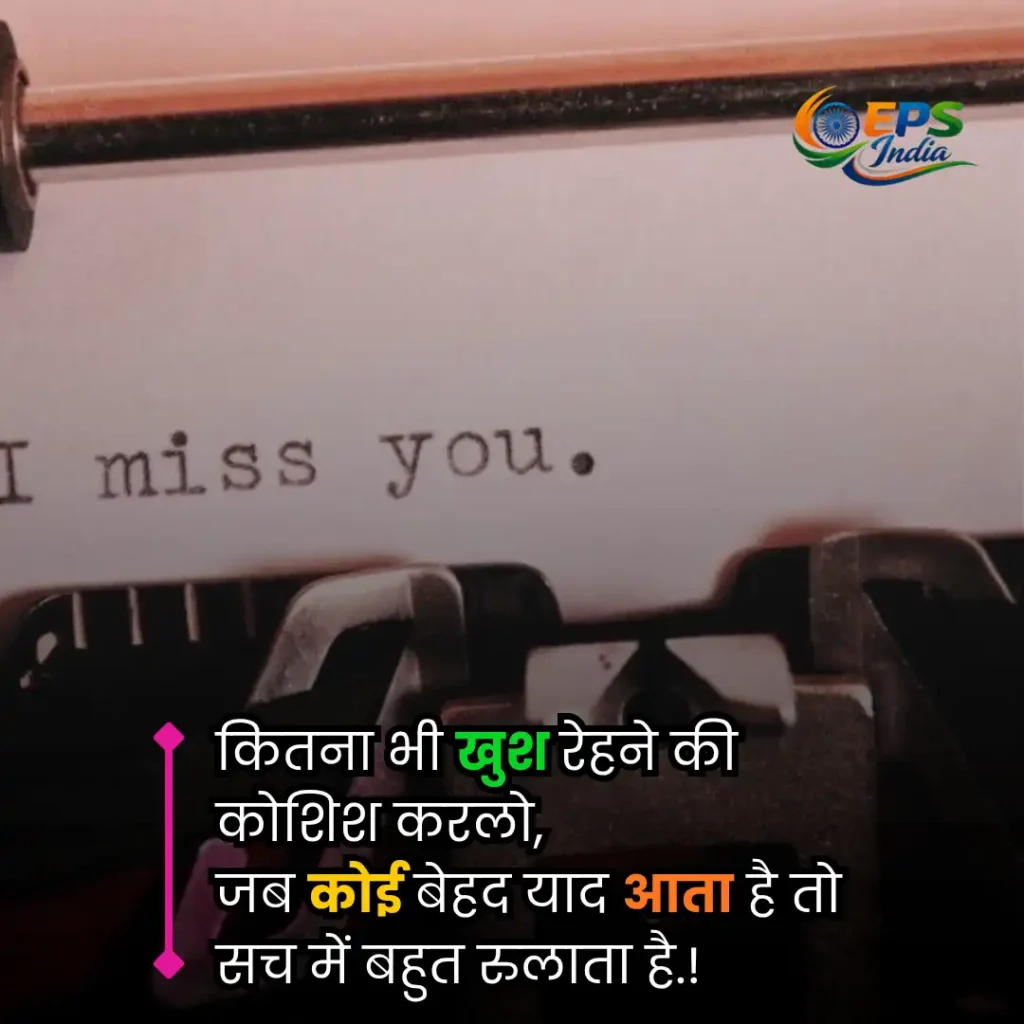 EPS
India
I miss you.
कितना भी खुश रेहने की
कोशिश करलो,
जब कोई बेहद याद आता है तो
सच में बहुत रुलाता है.!